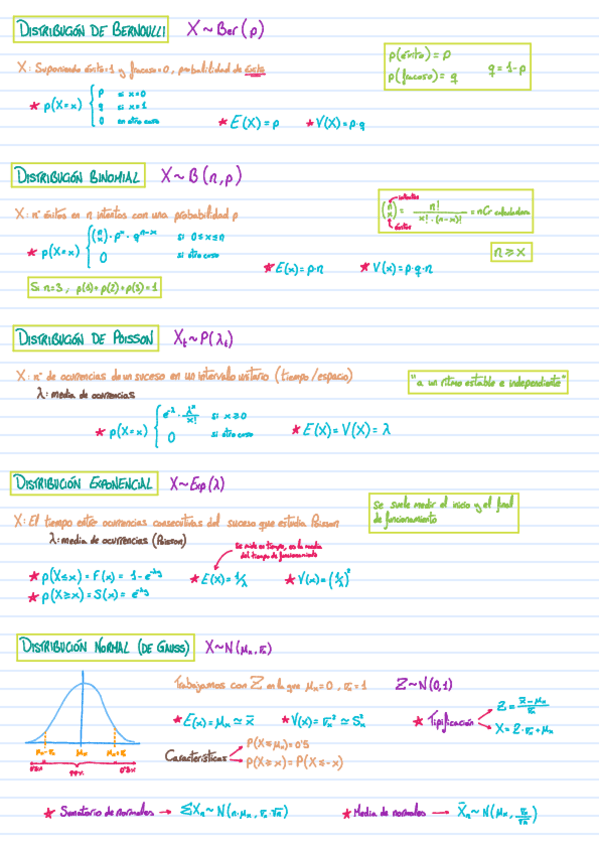 DISTRIBUCIÓN DE BERNOULLI X ~ Ber(p)
p(éxito) = p
p(fracaso) = q q = 1-p
X: Suponiendo éxito=1 y fracaso=0, probabilidad de éxito
★ p(X=x) { p si x=0
q si x=1
0 en otro caso
★ E(X) = p ★ V(X) = p·q
DISTRIBUCIÓN BINOMIAL X ~ B(n,p)
intentos
(n x) = n! / x!·(n-x)! = nCr calculadora
éxitos
X: nº éxitos en n intentos con una probabilidad p
★ p(X=x) { (n x)·pˣ·qⁿ⁻ˣ si 0≤x≤n
0 si otro caso
n ≥ x
★ E(x) = p·n ★ V(x) = p·q·n
Si n=3, p(0)+p(2)+p(3)=1
DISTRIBUCIÓN DE POISSON Xt ~ P(λt)
X: nº de ocurrencias de un suceso en un intervalo unitario (tiempo/espacio)
"a un ritmo estable e independiente"
λ: media de ocurrencias
★ p(X=x) { e^-λ · λˣ/x! si x≥0
0 si otro caso
★ E(X) = V(X) = λ
DISTRIBUCIÓN EXPONENCIAL X ~ Exp(λ)
Se suele medir el inicio y el final
de funcionamiento
X: El tiempo entre ocurrencias consecutivas del suceso que estudia Poisson
λ: media de ocurrencias (Poisson)
Se mide en tiempo, es la media
del tiempo de funcionamiento
★ p(X≤x) = F(x) = 1-e^-λy ★ E(X) = 1/λ ★ V(x) = (1/λ)²
★ p(X≥x) = S(x) = e^-λy
DISTRIBUCIÓN NORMAL (DE GAUSS) X ~ N(μx, σx)
Trabajamos con Z en la que μx=0, σx=1 Z ~ N(0,1)
★ E(x) = μx ≃ x̄ ★ V(x) = σx² ≃ Sx² ★ Tipificación
Z = x̄-μx / σx
X = Z·σx+μx
μx-σx μx μx+σx
99%
Características
p(X≤μx) = 0'5
p(X≥x) = P(X≤-x)
★ Sumatorio de normales → ΣXn ~ N(n·μx, σx·√n) ★ Media de normales → X̄n ~ N(μx, σx/√n)